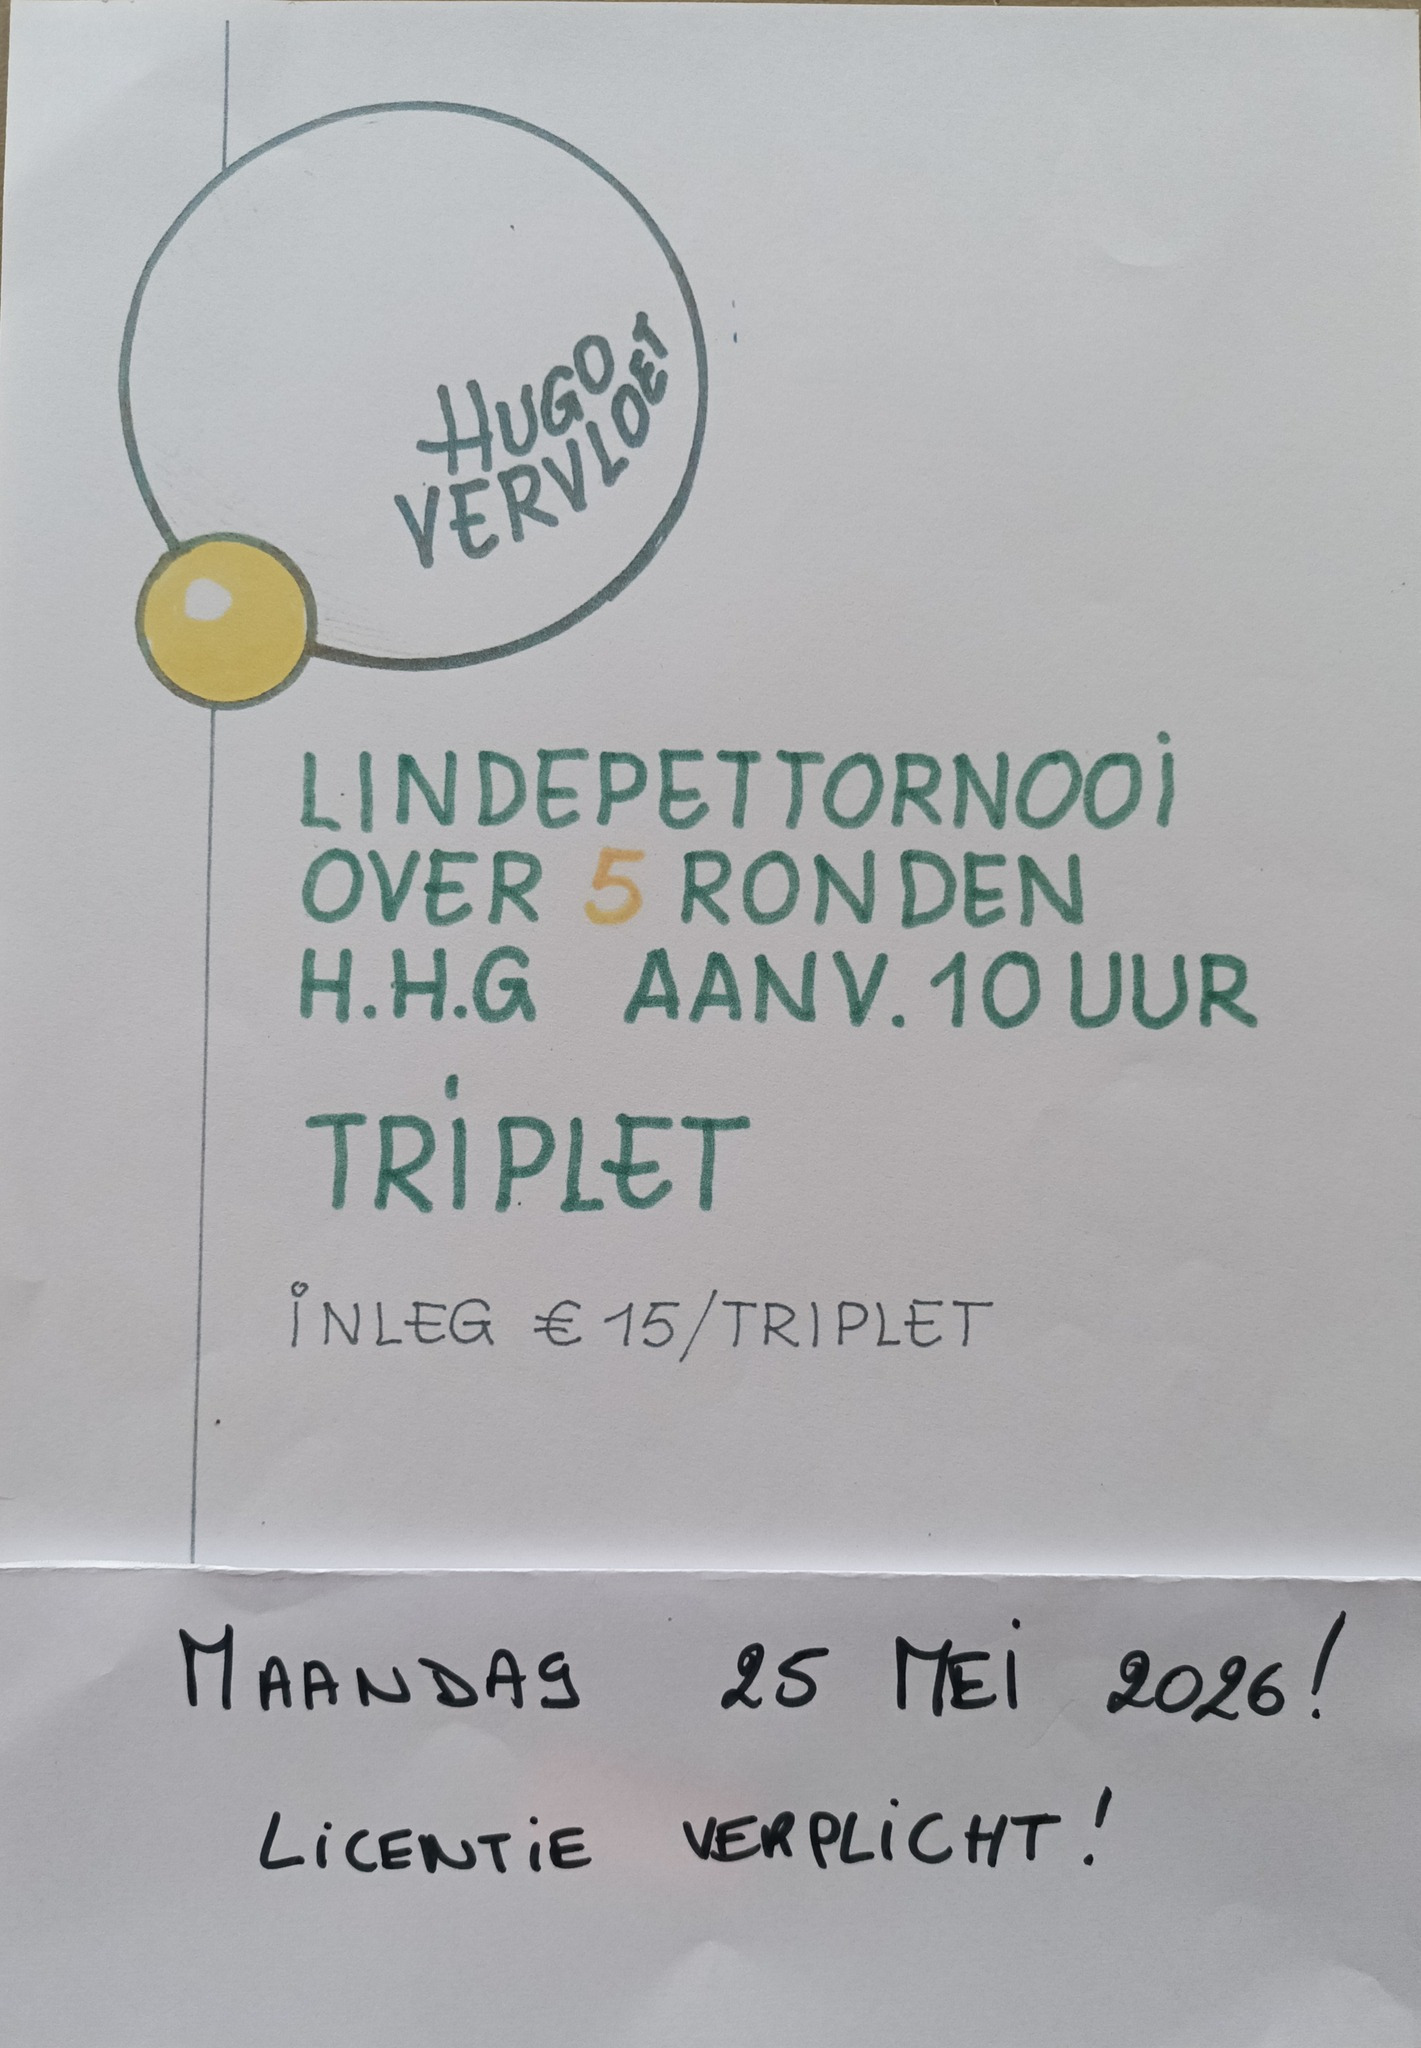 HUGO
VERVLOET
LINDEPETTORNOOI
OVER 5 RONDEN
H.H.G AANV. 10 UUR
TRIPLET
INLEG € 15/TRIPLET
MAANDAG 25 MEI 2026!
LICENTIE VERPLICHT!